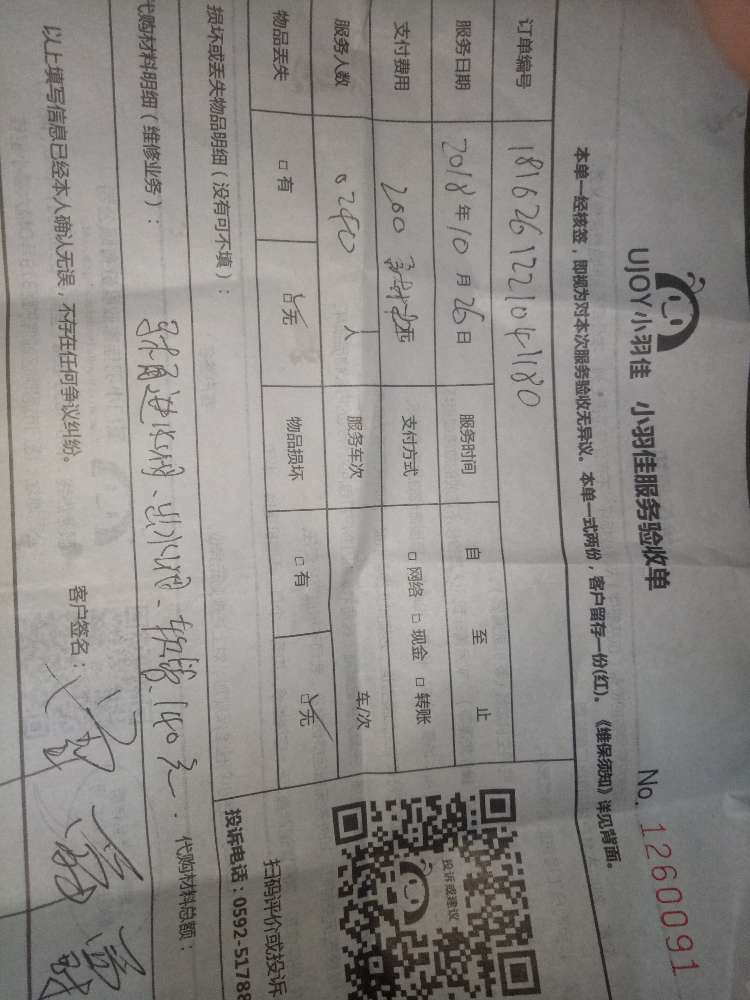 UJOY小羽佳 小羽佳服务验收单
No. 1260091
本单一经核签，即视为对本次服务验收无异议。本单一式两份，客户留存一份(红)。《维保须知》详见背面。
订单编号 181626122104180
服务日期 2018年10月26日 服务时间 自 至 止
支付费用 200 支付方式 □网络 □现金 □转账
服务人数 人 服务车次 车/次
物品丢失 □有 □无 物品损坏 □有 □无
损坏或丢失物品明细（没有可不填）：
代购材料明细（维修业务）： 软管、140元. 代购材料总额：
以上填写信息已经本人确认无误，不存在任何争议纠纷。 客户签名：
投诉或建议
扫码评价或投诉
投诉电话：0592-5178